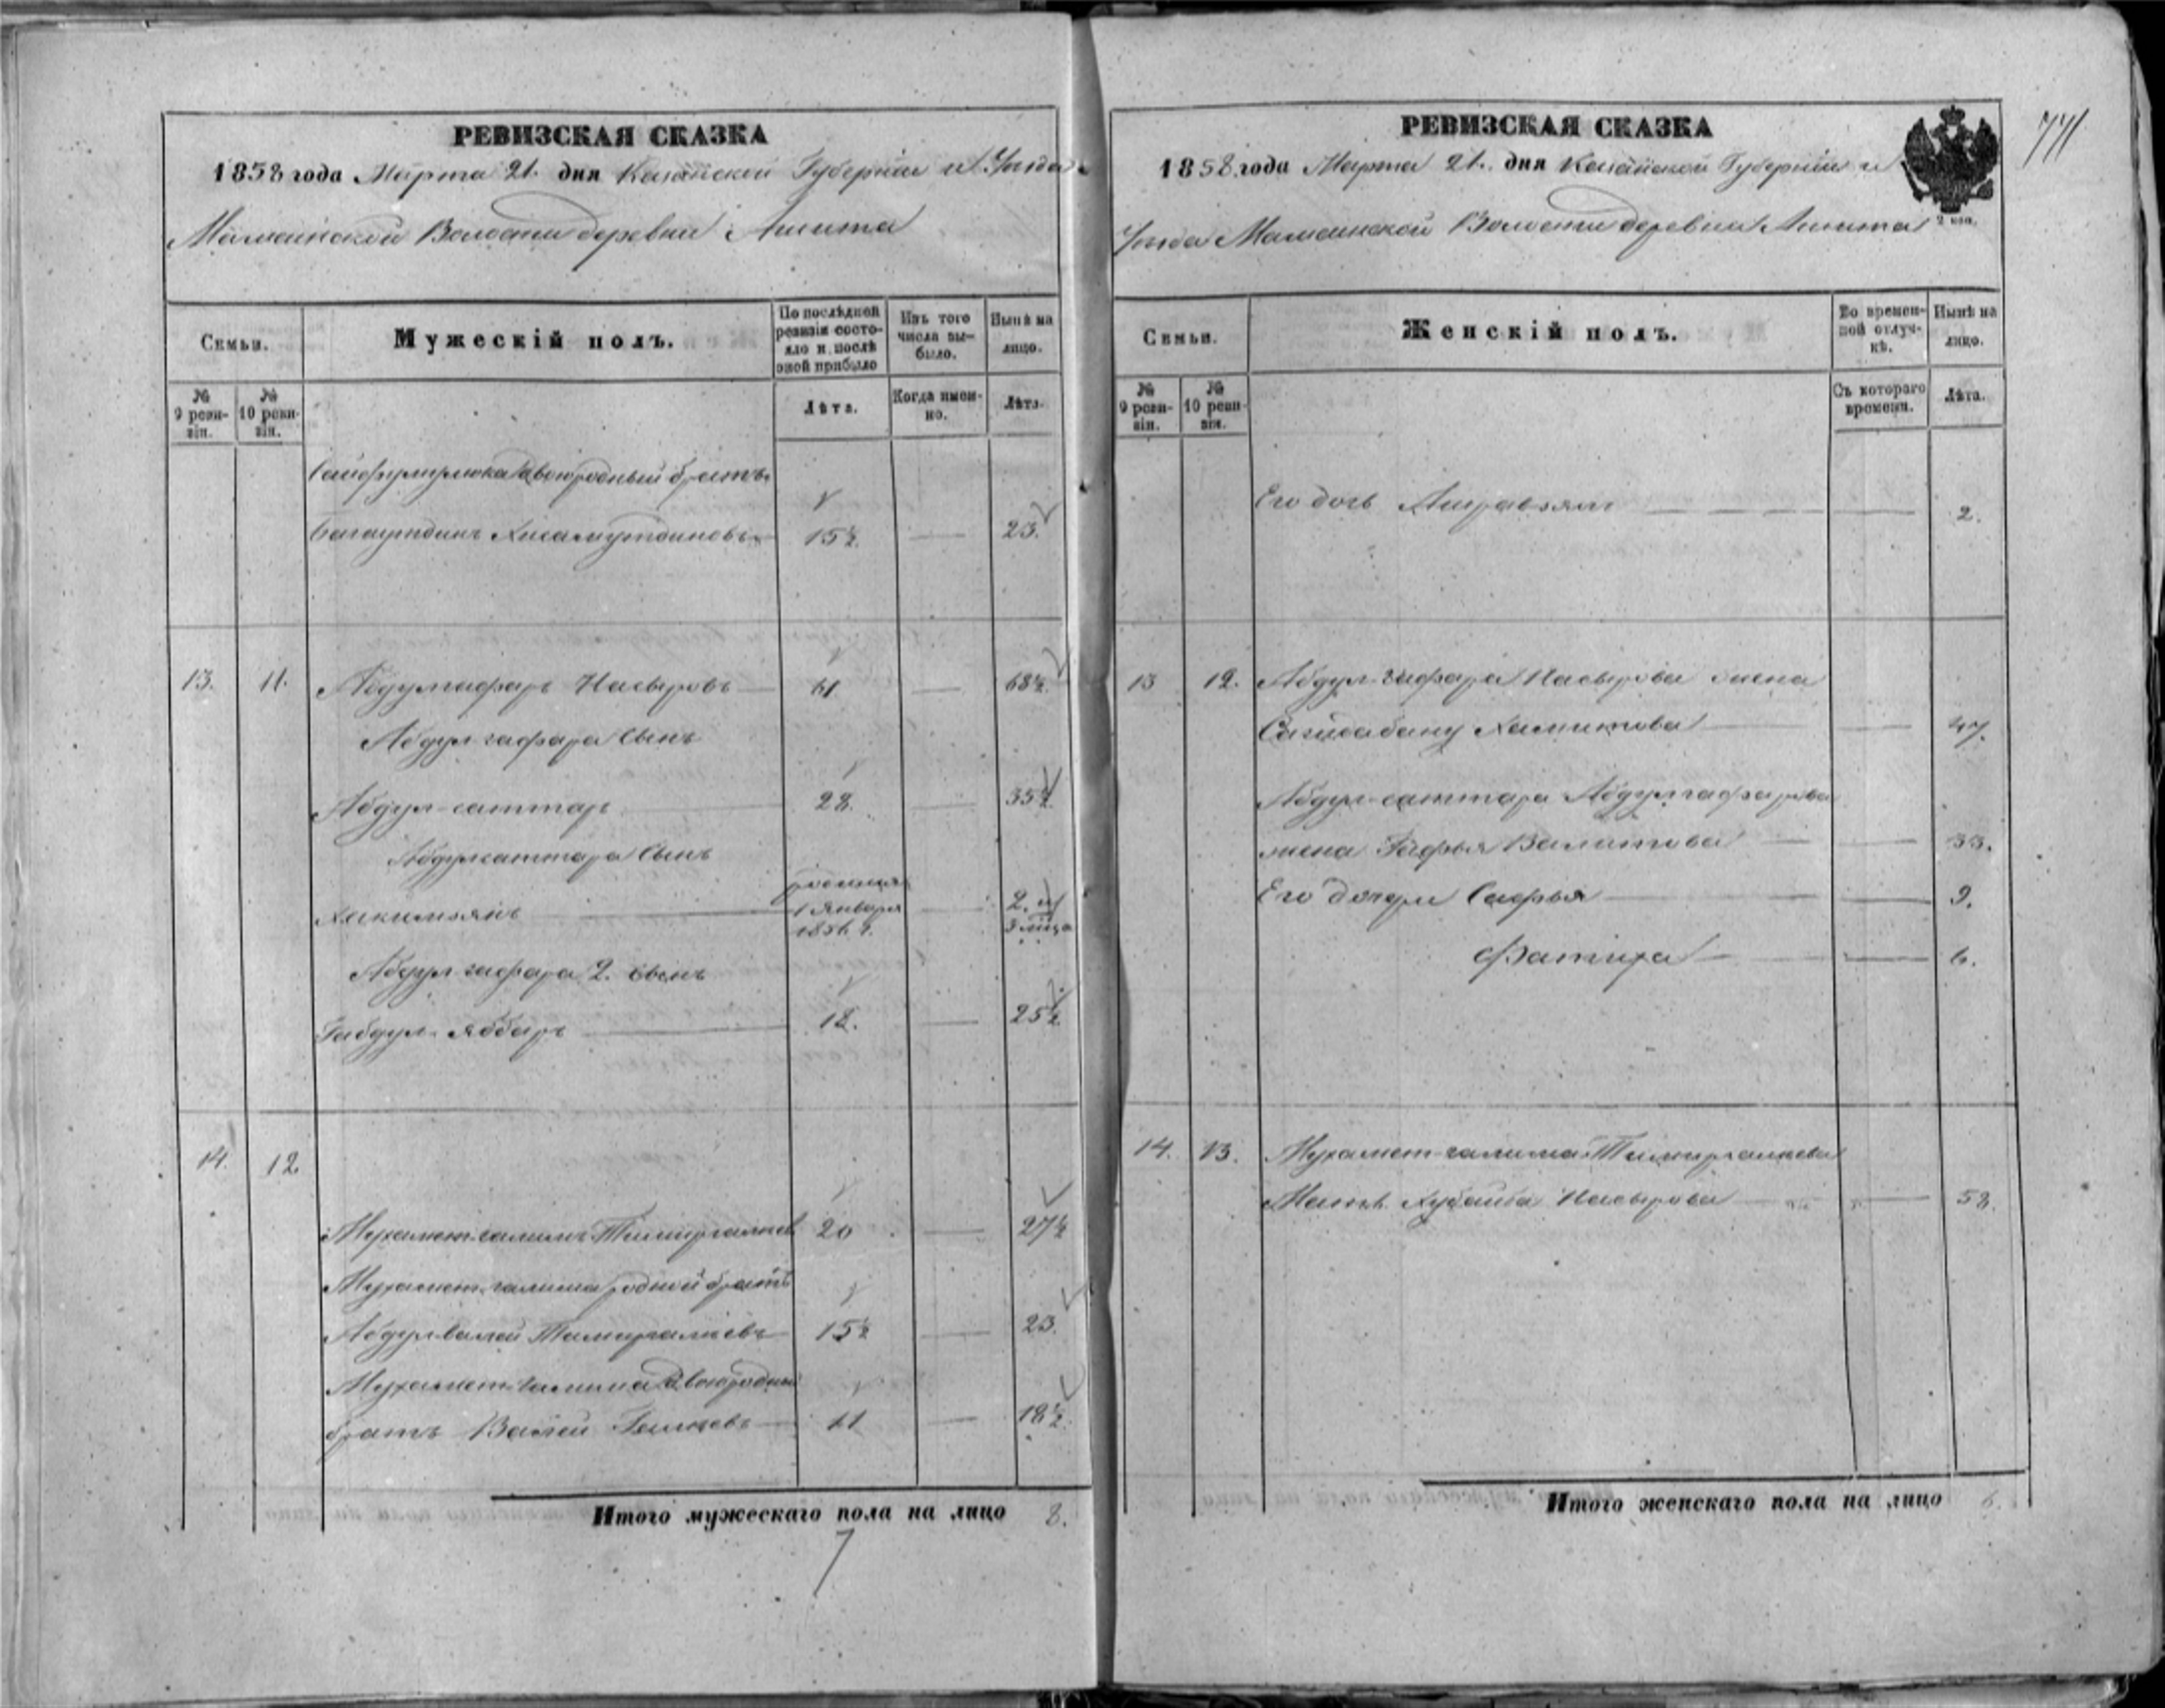 РЕВИЗСКАЯ СКАЗКА
1858 года Марта 21. дня Казанской Губернии и Уезда
Мамсинской Волости деревни Ашита
Семьи.
Мужескій полъ.
По послѣдней ревизіи состояло и послѣ оной прибыло
Изъ того числа выбыло.
Нынѣ на лицо.
№ 9 ревизіи.
№ 10 ревизіи.
Лѣта.
Когда именно.
Лѣта.
двоюродный братъ
Багаутдинъ Хисамутдиновъ 15½ 23.
13. 11. Абдулгафаръ Насыровъ 61 68½
Абдул гафара Сынъ
Абдул-саттаръ 28. 35½
Абдулсаттара Сынъ
Хакимзянъ 1 Января 2. и
Абдул гафара 2. сынъ
Габдул-яббаръ 18. 25½
14. 12
Мухаметгалимъ Тимиргалиев 20 27½
Мухамет галима родной братъ
Абдулвалей Тимиргалиевъ 15½ 23.
Мухамет-галима двоюродный
братъ Валей 11 18½
Итого мужескаго пола на лицо 8.
7
РЕВИЗСКАЯ СКАЗКА
1858 года Марта 21. дня Казанской Губернии и
Уезда Мамсинской Волости деревни Ашита
2 коп.
Семьи.
Женскій полъ.
Во временной отлучкѣ.
Нынѣ на лицо.
№ 9 ревизіи.
№ 10 ревизіи.
Съ котораго времени.
Лѣта.
Его дочь 2.
13 12. Абдул-гафара Насырова жена
Сагидабану Хамитова 47.
Абдул-саттара Абдулгафарова
жена Валитова 33.
Его дочери Сафья 9.
Фатиха 6.
14. 13. Мухамет-галима Тимиргалиева
Мать Хубайба Насырова 58.
Итого женскаго пола на лицо 6.